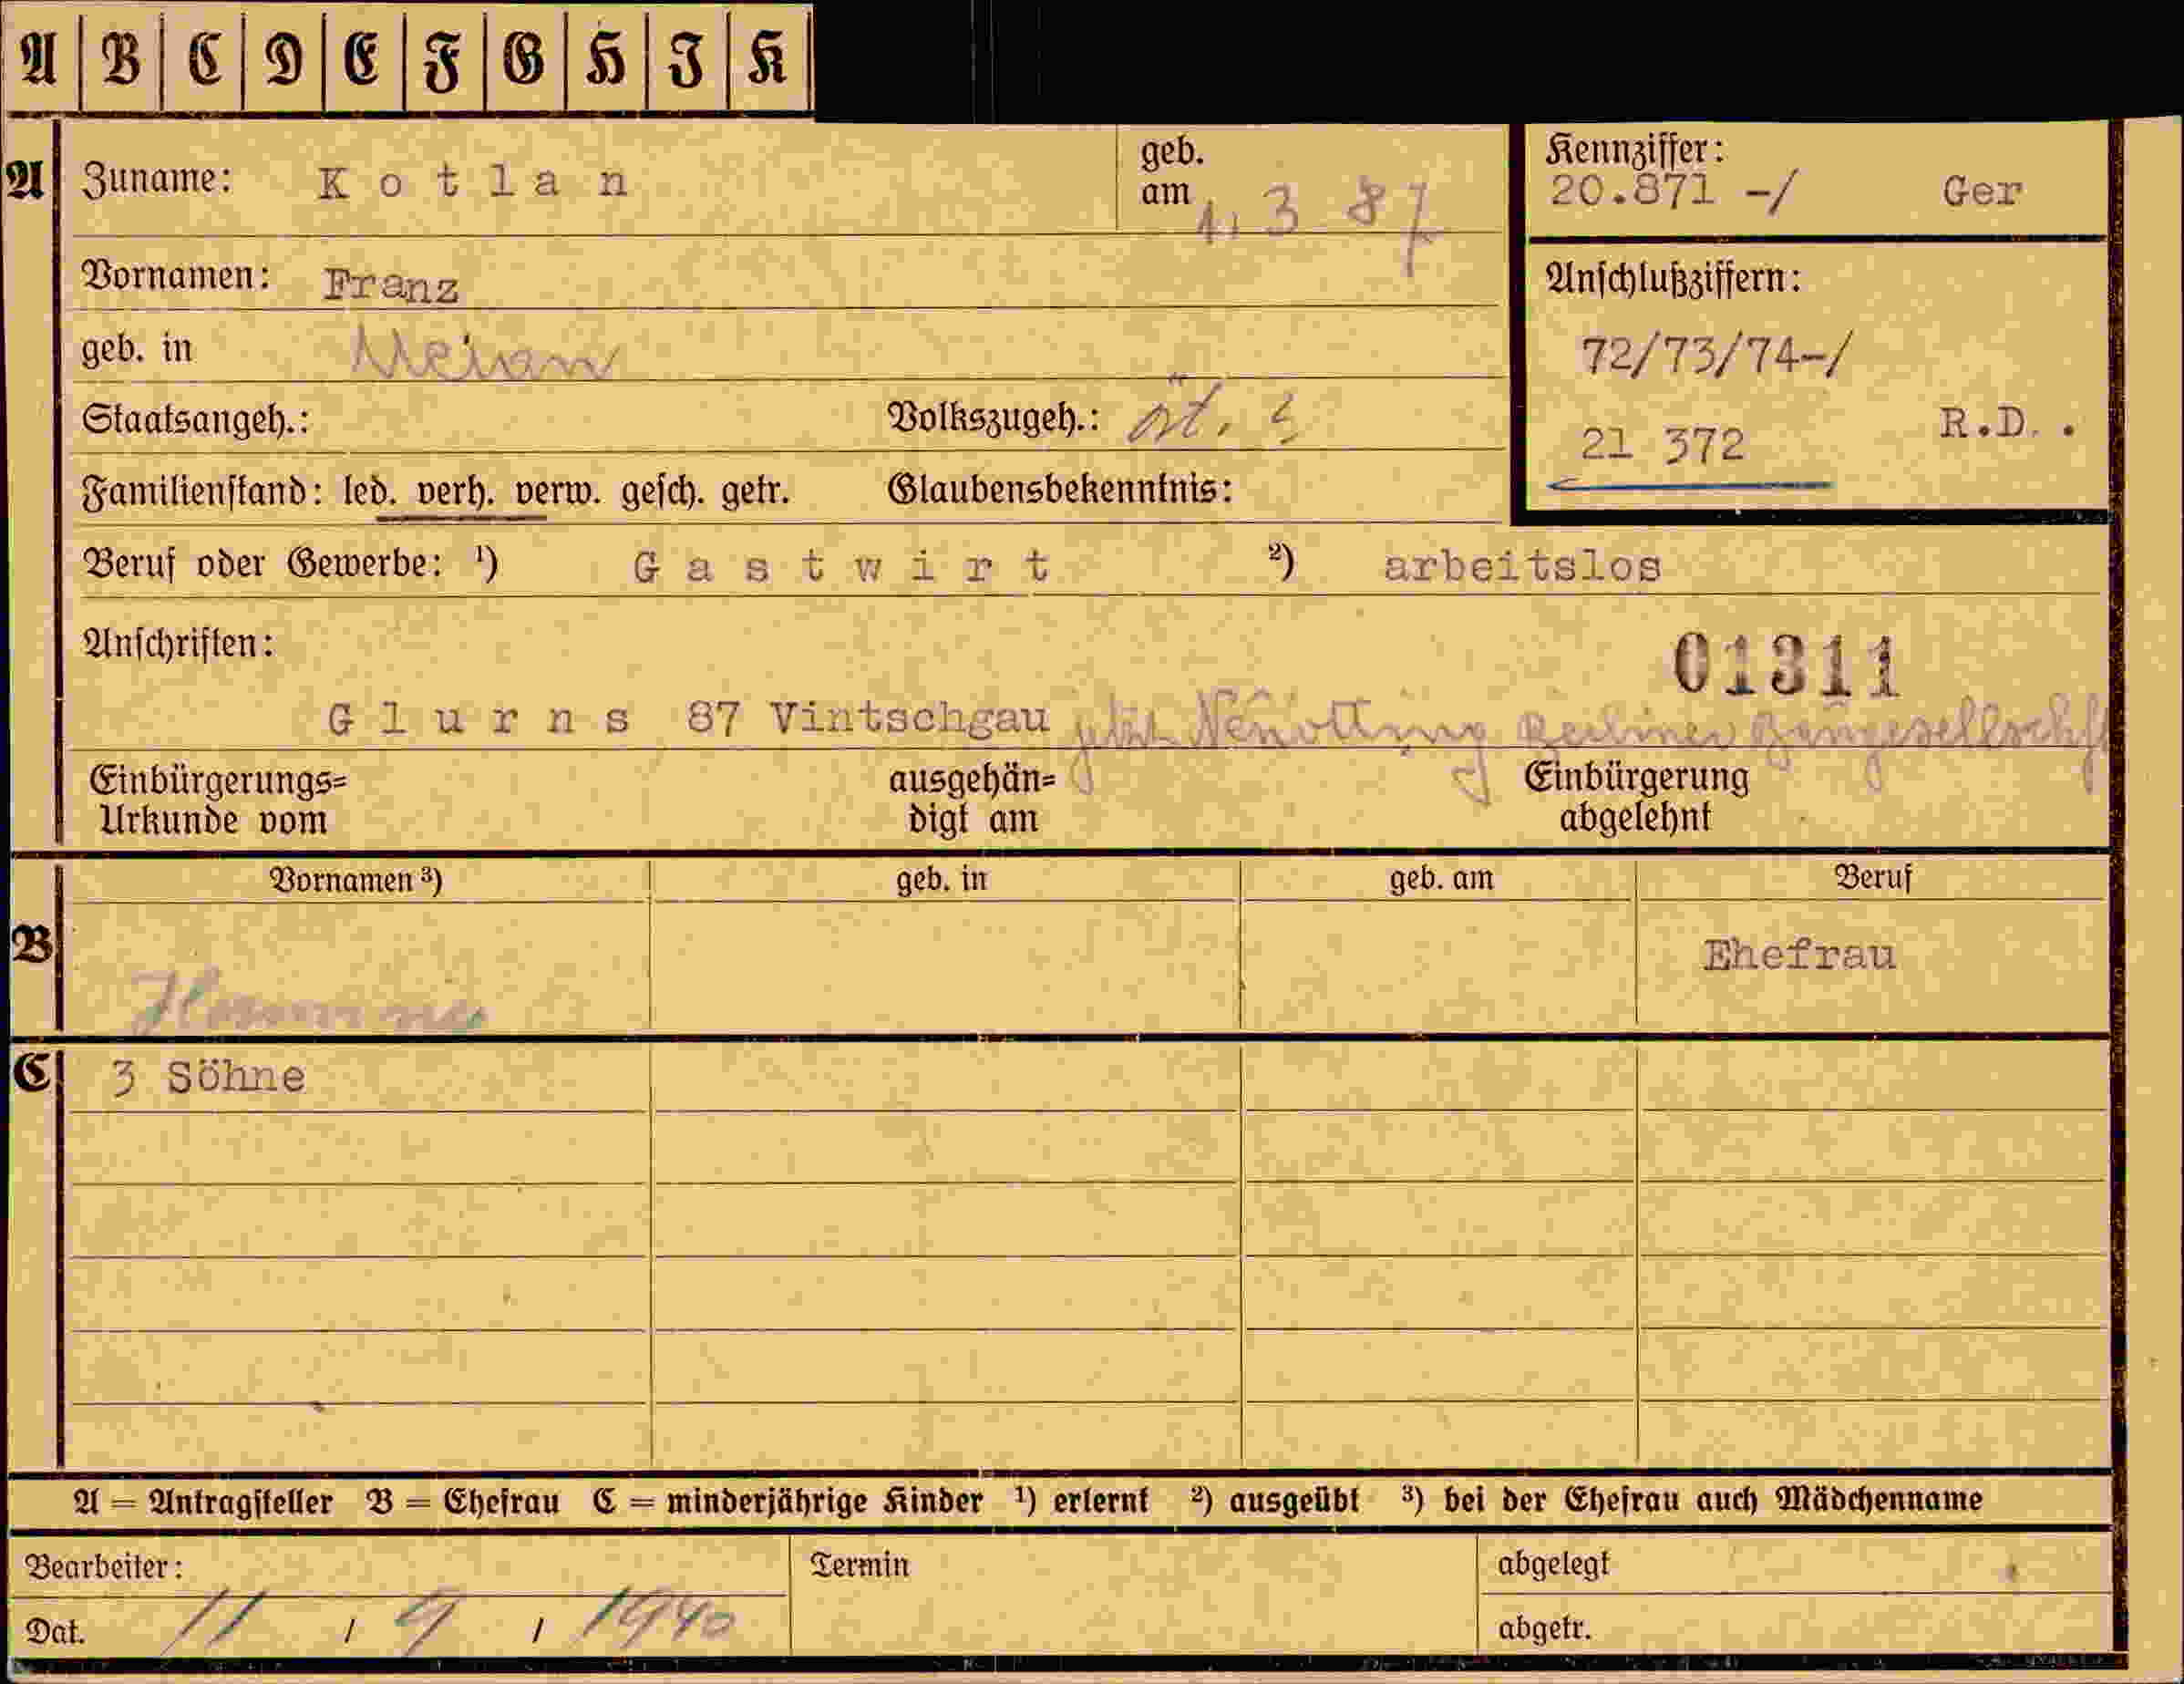 A B C D E F G H I K
A Zuname: Kotlan geb. am 1. 3 87
Kennziffer: 20.871 -/ Ger
Vornamen: Franz
Anschlußziffern:
geb. in Meran
72/73/74-/
Staatsangeh.: Volkszugeh.:
21 372 R.D. .
Familienstand: led. verh. verw. gesch. getr. Glaubensbekenntnis:
Beruf oder Gewerbe: ¹) Gastwirt ²) arbeitslos
Anschriften:
01311
Glurns 87 Vintschgau jetzt Neuötting Berliner Baugesellschft
Einbürgerungs= ausgehän= Einbürgerung
Urkunde vom digt am abgelehnt
Vornamen ³) geb. in geb. am Beruf
B Ehefrau
C 3 Söhne
A = Antragsteller B = Ehefrau C = minderjährige Kinder ¹) erlernt ²) ausgeübt ³) bei der Ehefrau auch Mädchenname
Bearbeiter: Termin abgelegt
Dat. 11 / 9 / 1940 abgetr.